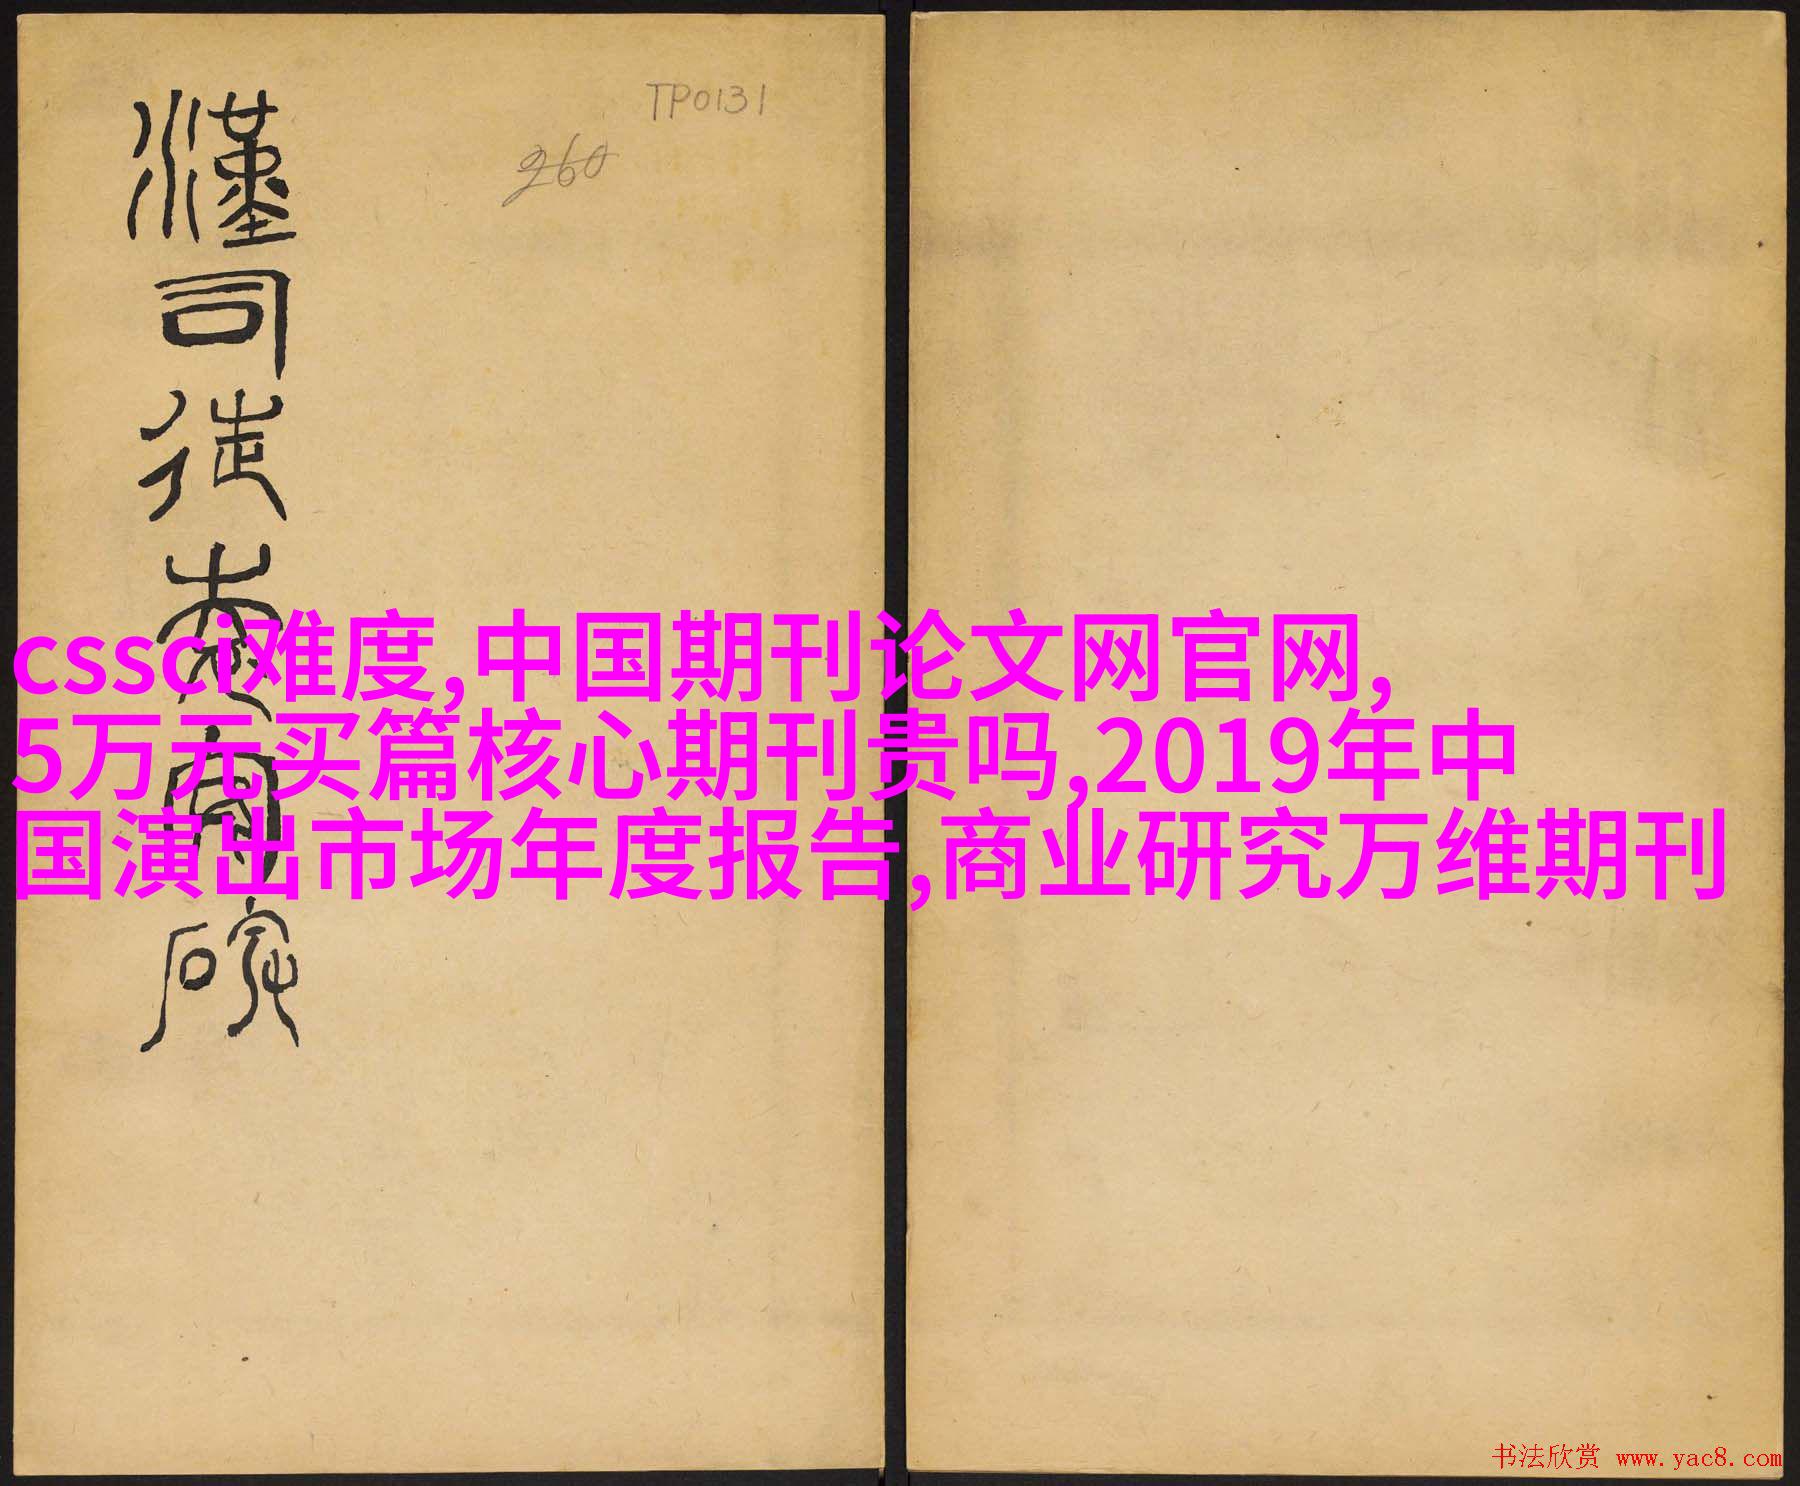 漢司徒袁安碑
TP0131
260
cssci难度,中国期刊论文网官网,
5万元买篇核心期刊贵吗,2019年中
国演出市场年度报告,商业研究万维期刊
书法欣赏 www.yac8.com